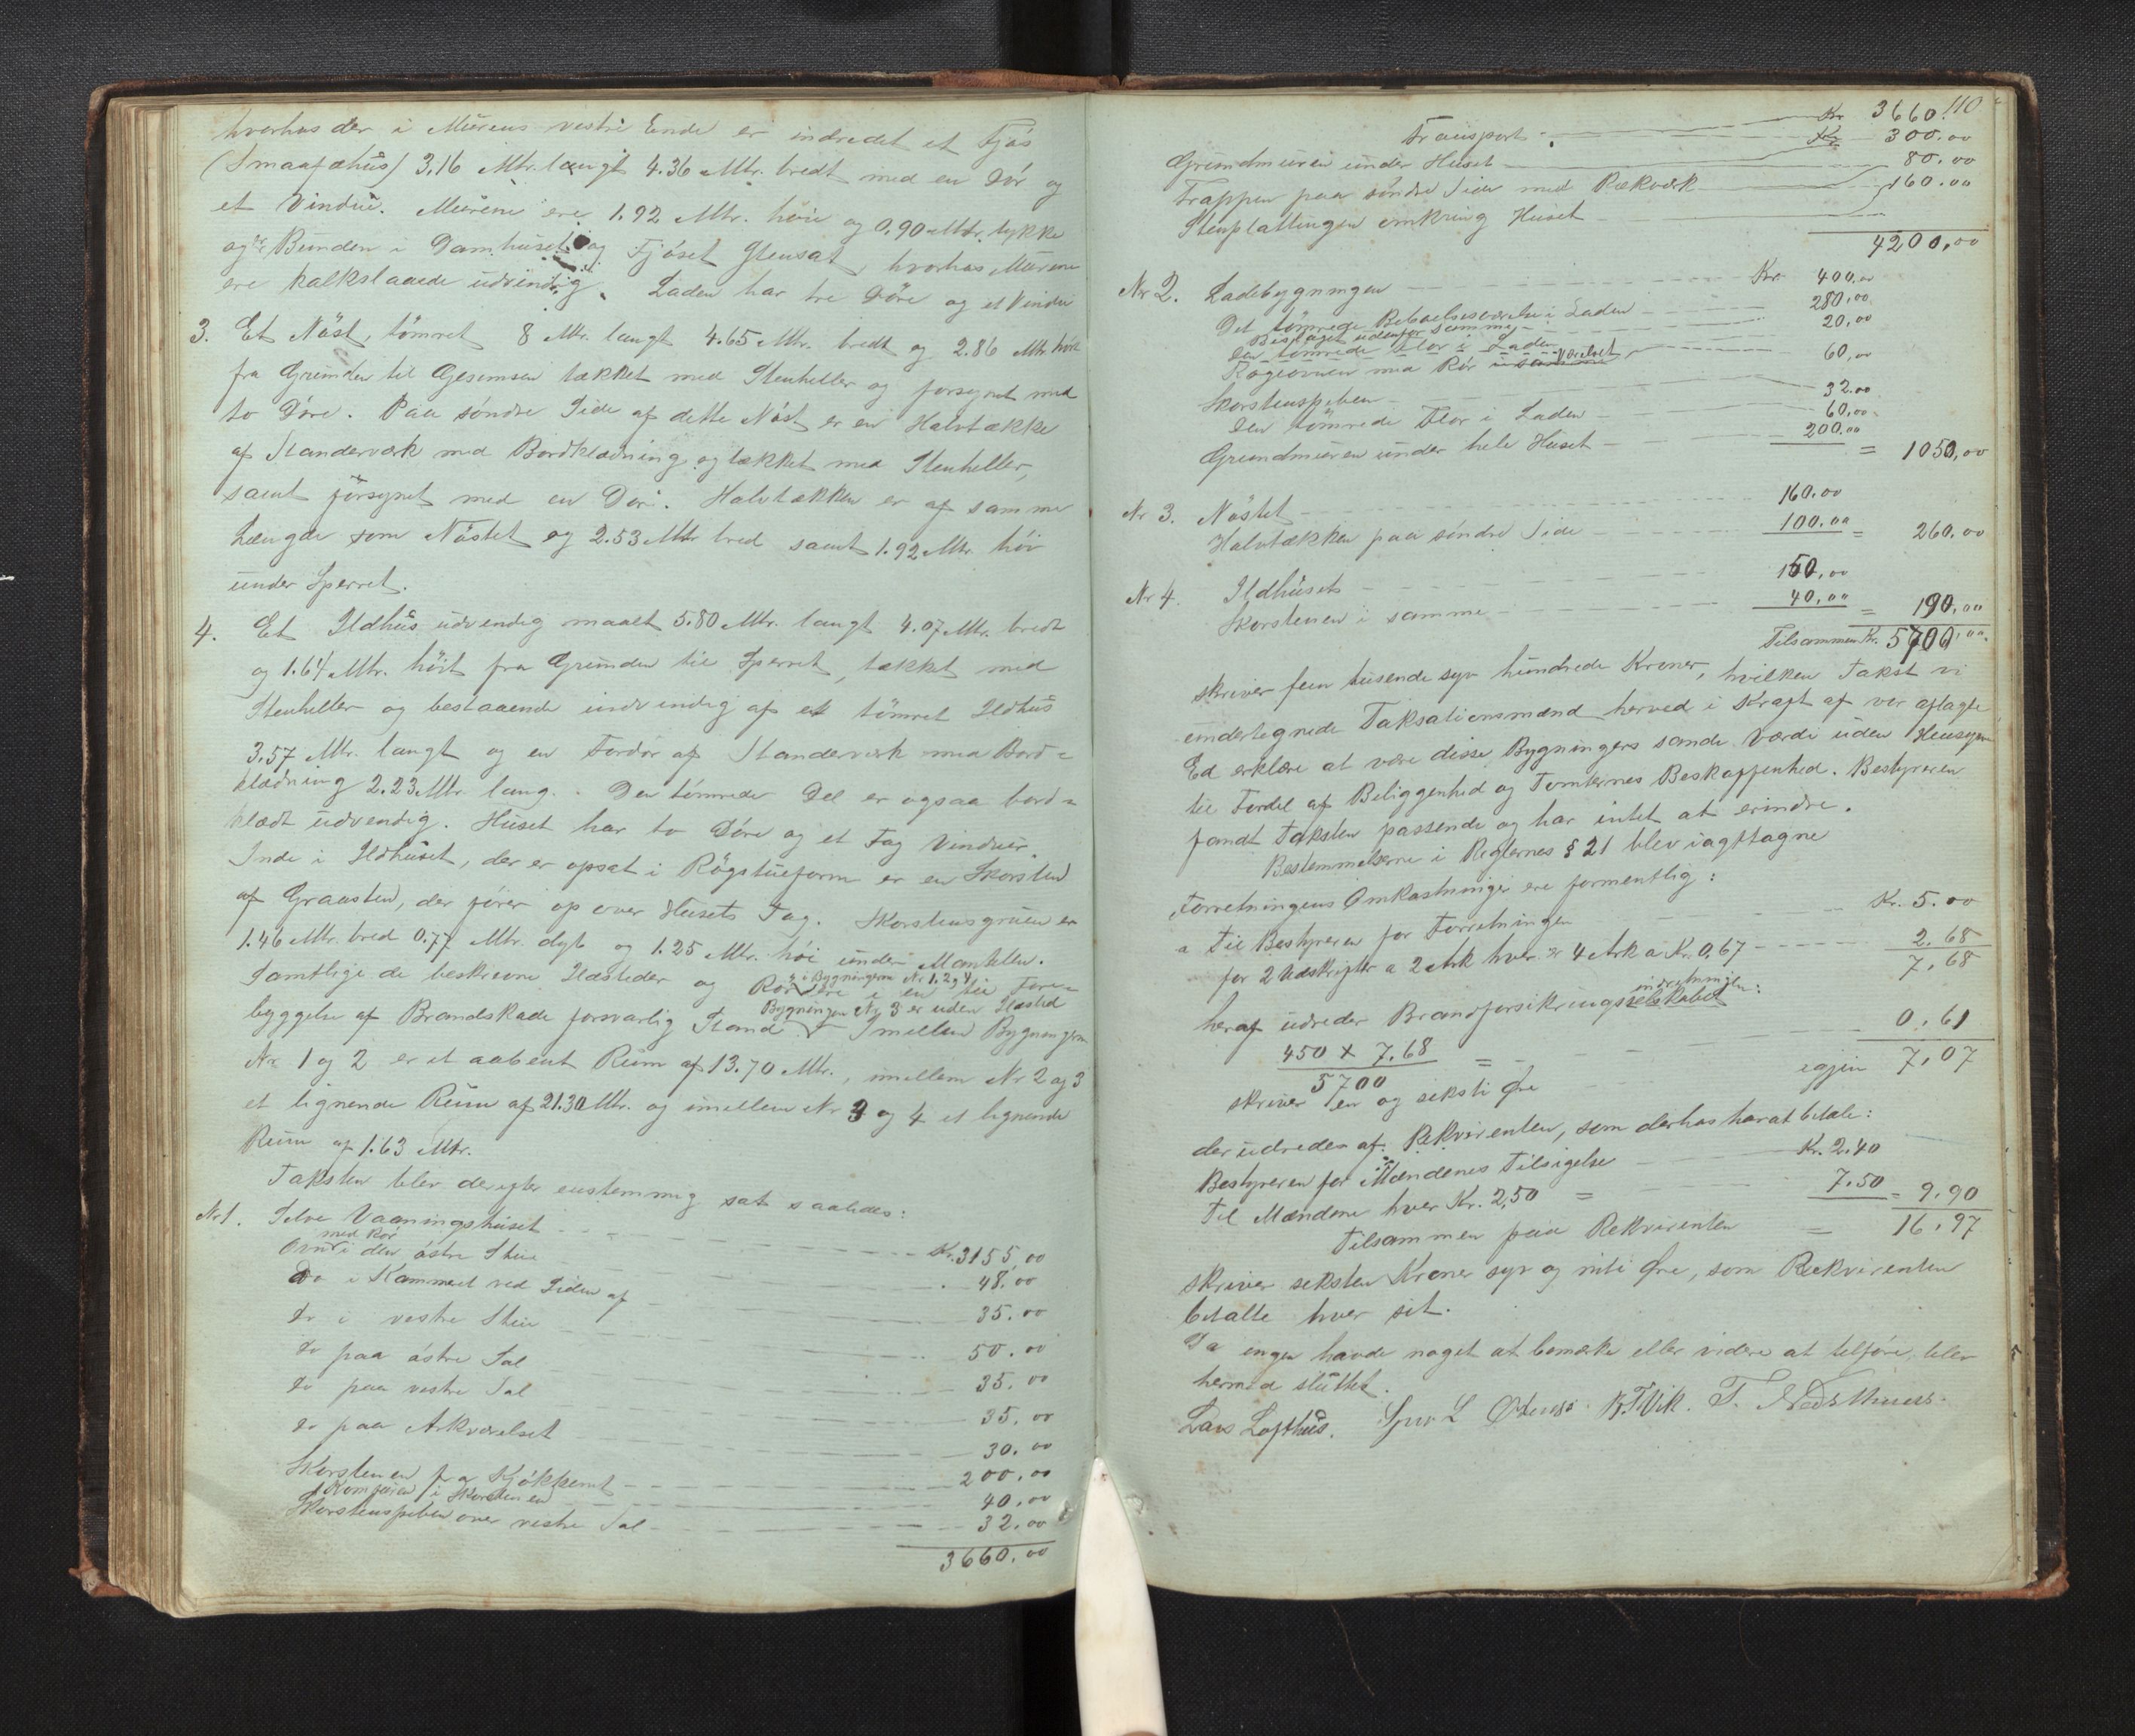 hvorhos der i Murens vestre Ende er indredet et Fjøs
(Smaafæhus) 3.16 Mtr. langt 4.36 Mtr. bredt med en Dør og
et Vindue. Murene ere 1.92 Mtr. høie og 0.90 Mtr. tykke
og Bunden i Damhuset og Fjøset stensat, hvorhos Murene
ere kalkslaaede udvendig. Laden har tre Døre og et Vindu
3. Et Nøst, tømret 8 Mtr. langt 4.65 Mtr. bredt og 2.86 Mtr. høit
fra Grunden til Gesemsen tækket med Stenheller og forsynet med
to Døre. Paa søndre Side af dette Nøst er en Halvtække
af Standerværk med Bordklædning og tækket med Stenheller,
samt forsynet med en Dør. Halvtækken er af samme
Længde som Nøstet og 2.53 Mtr bred samt 1.92 Mtr. høi
under Sperret.
4. Et Ildhus udvendig maalt 5.80 Mtr. langt 4.07 Mtr. bredt
og 1.64 Mtr. høit fra Grunden til Sperret, tækket med
Stenheller og bestaaende indvendig af et tømret Ildhus
3.57 Mtr. langt og en Fordør af Standerværk med Bord=
klædning 2.23 Mtr. lang. Den tømrede Del er ogsaa bord=
klædt udvendig. Huset har to Døre og et Fag Vinduer
Inde i Ildhuset, der er opsat i Røgstueform er en Skorsten
af Graasten, der fører op over Husets Tag. Skorstensgruen er
1.46 Mtr. bred 0.77 Mtr. dyb og 1.25 Mtr. høi under Mantelen.
Samtlige de beskrevne Ildsteder og Rør i Bygningerne Nr 1. 2 og 4 ere i en til Fore=
byggelse af Brandskade forsvarlig Stand Bygningen Nr 3 er uden Ildsted Imellem Bygningerne
Nr 1 og 2 er et aabent Rum af 13.70 Mtr., imellem Nr 2 og 3
et lignende Rum af 21.30 Mtr. og imellem Nr 3 og 4 et lignende
Rum af 1.63 Mtr.
Taksten blev derefter enstemmig sat saaledes:
Nr 1. Selve Vaaningshuset Kr. 3155,00
Ovn med Rør i den østre Stue 48.00
Do i Kammeret ved Siden af 35.00
do i vestre Stue 50.00
do paa østre Sal 35.00
do paa vestre Sal 35.00
do paa Arkværelset 30.00
Skorstenen fra Kjøkkenet 200.00
Komfuren i Skorstenen 40.00
Skorstenspiben over vestre Sal 32.00
3660.00
110
Transport Kr 3660.
Grundmuren under Huset Kr 300.00
Trappen paa søndre Side med Rækværk 80.00
Stenplattingen omkring Huset 160.00
4200,00
Nr 2. Ladebygningen Kr. 400,00
Det tømrede Beboelsesværelse i Laden 280,00
Bislaget udenfor samme 20,00
den tømrede Flor i Laden
Kogeovnen med Rør i Værelset 60,00
Skorstenspiben 32.00
den tømrede Flor i Laden 60,00
Grundmuren under hele Huset 200.00 = 1050,00
Nr 3. Nøstet 160.00
Halvtækken paa søndre Side 100.00 = 260.00
Nr 4. Ildhuset 150,00
Skorstenen i samme 40,00 = 190,00
Tilsammen Kr. 5700,00
skriver fem tusende syv hundrede Kroner, hvilken Takst vi
undertegnede Taksationsmænd herved i Kraft af vor aflagte
Ed erklære at være disse Bygningers sande Værdi uden Hensyn
til Fordel af Beliggenhed og Tomternes Beskaffenhed. Bestyreren
fandt Taksten passende og har intet at erindre.
Bestemmelserne i Reglernes § 21 blev iagttagne
Forretningens Omkostninger ere formentlig:
a Til Bestyreren for Forretningen Kr. 5.00
for 2 Udskrifter a 2 Ark hver er 4 Ark a Kr. 0,67 2.68
7.68
heraf udreder Brandforsikringsindretningen:
450 x 7.68 / 5700 = 0.61
skriver en og seksti Øre igjen 7,07
der udredes af Rekvirenten, som derhos har at betale:
Bestyreren for Mændenes Tilsigelse Kr. 2.40
Til Mændene hver Kr. 2,50 = 7.50 = 9.90
Tilsammen paa Rekvirenten = 16.97
skriver seksten Kroner syv og niti Øre, som Rekvirenten
betalte hver sit.
Da ingen havde noget at bemærke eller videre at tilføre, blev
hermed sluttet.
Lars Lofthus. L B. T Vik. T.